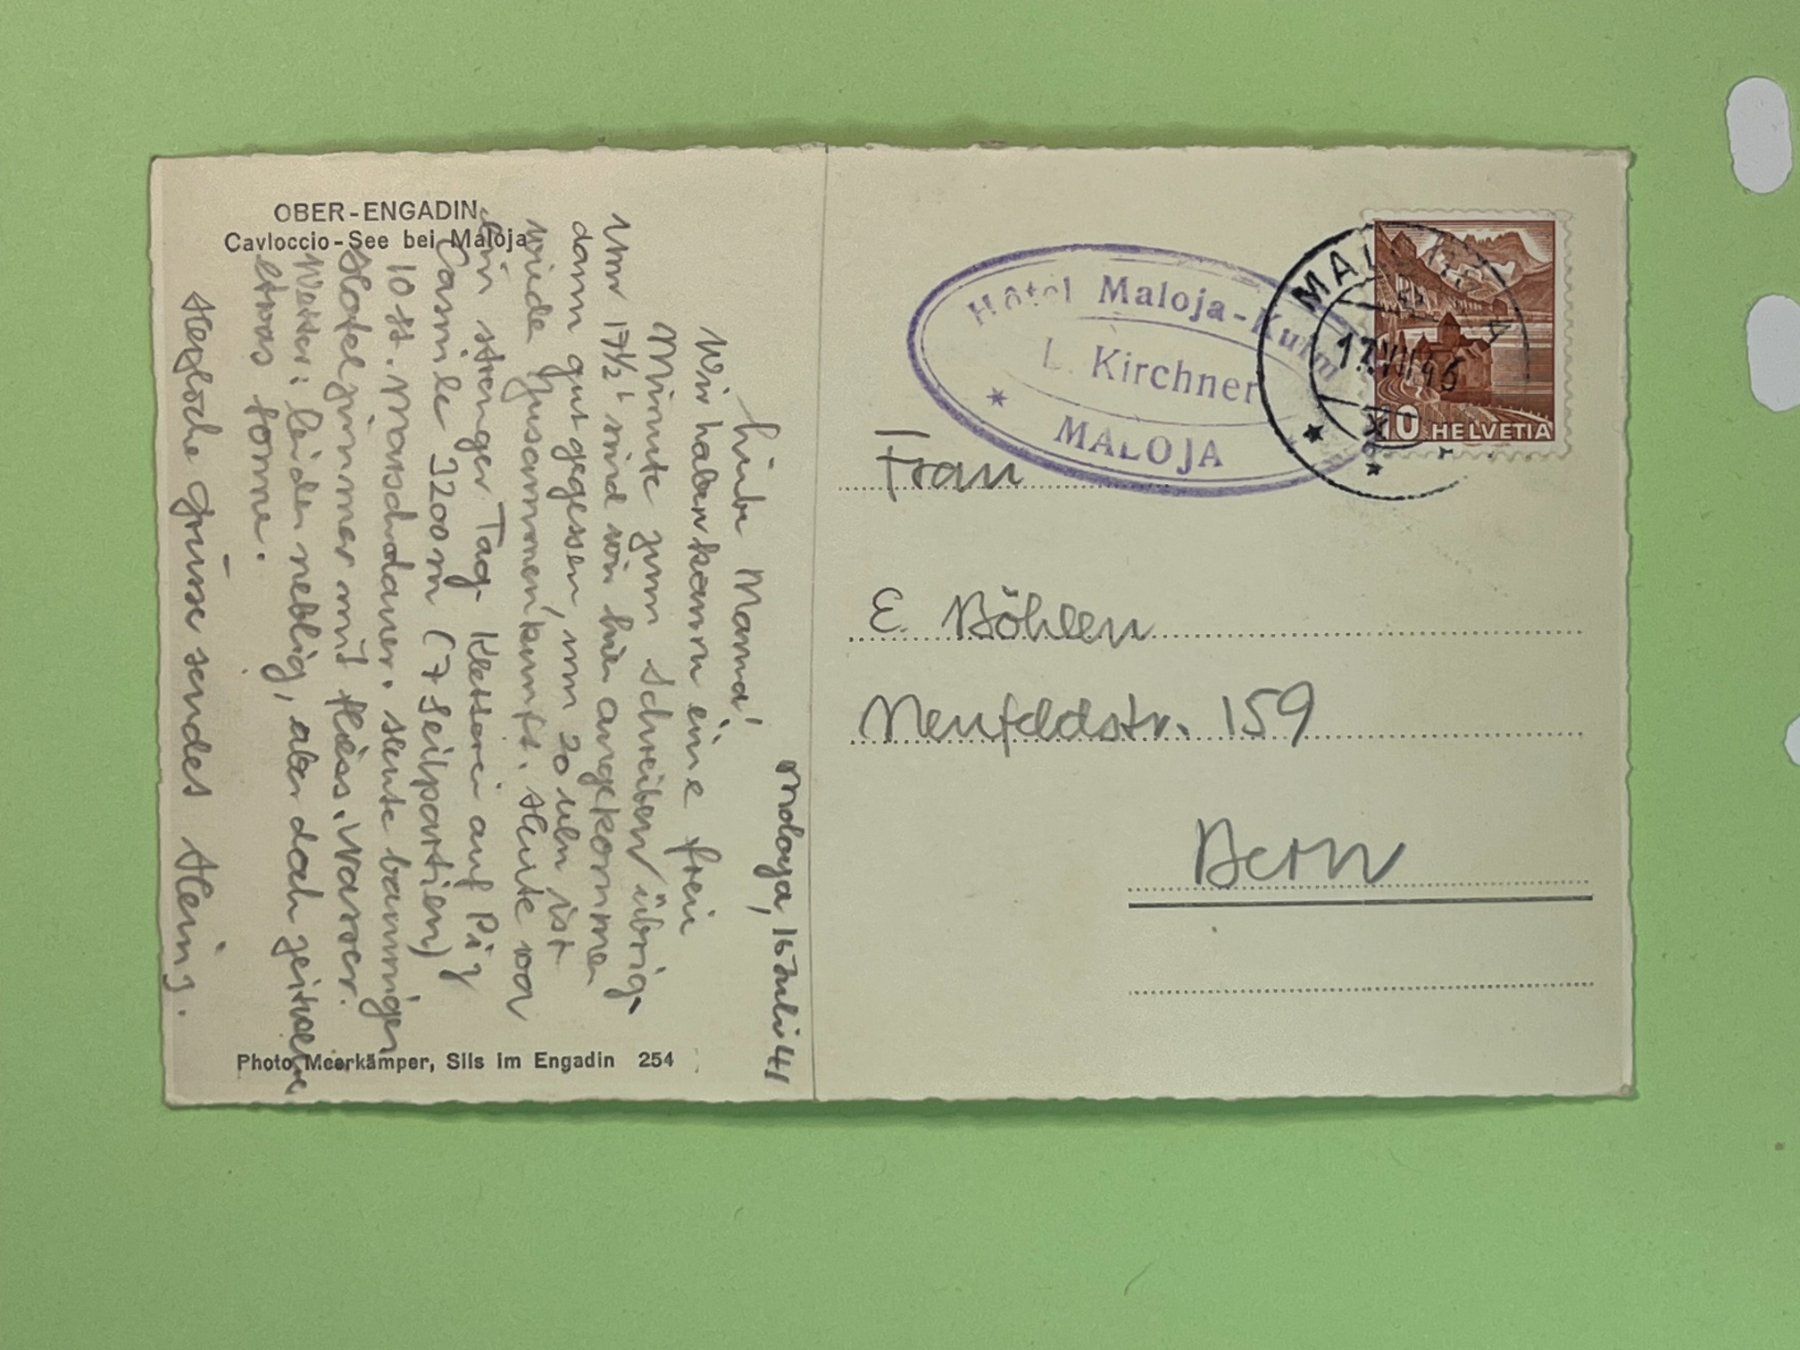 OBER-ENGADIN
Cavloccio-See bei Maloja
Maloja, 16 Juli 41
Liebe Mama!
Wir haben kaum eine freie
Minute zum Schreiben übrig.
Um 17½ sind wir hier angekommen
dann gut gegessen, um 20 Uhr ist
wieder Zusammenkunft. Heute war
ein strenger Tag. Kletterei auf Piz
Casnile 3200 m (7 Seilpartien)
10 St. Marschdauer. Heute
Hotelzimmer mit fliess. Wasser.
Wetter: leider neblig, aber doch
etwas Sonne.
Herzliche Grüsse sendet Heinz.
Photo Meerkämper, Sils im Engadin 254
Hôtel Maloja-Kulm
L. Kirchner
MALOJA
MALOJA
17.VII.
10 HELVETIA
Frau
E. Böhlen
Neufeldstr. 159
Bern